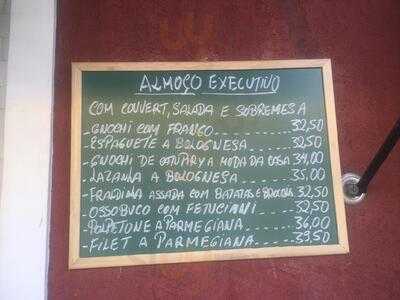 ALMOÇO EXECUTIVO
COM COUVERT, SALADA E SOBREMESA
- GNOCHI COM FRANGO ---------- 32,50
- ESPAGUETE A BOLOGNESA ------- 32,50
- GNOCHI DE CATUPIRY A MODA DA CASA 34,00
- LAZANHA A BOLOGNESA ------- 35.00
- FRALDINHA ASSADA COM BATATAS E BROCOLIS 32,50
- OSSOBUCO COM FETUCIANI ------ 32,50
- POLPETONE A PARMEGIANA ------ 36,00
- FILET A PARMEGIANA ------- 39,50